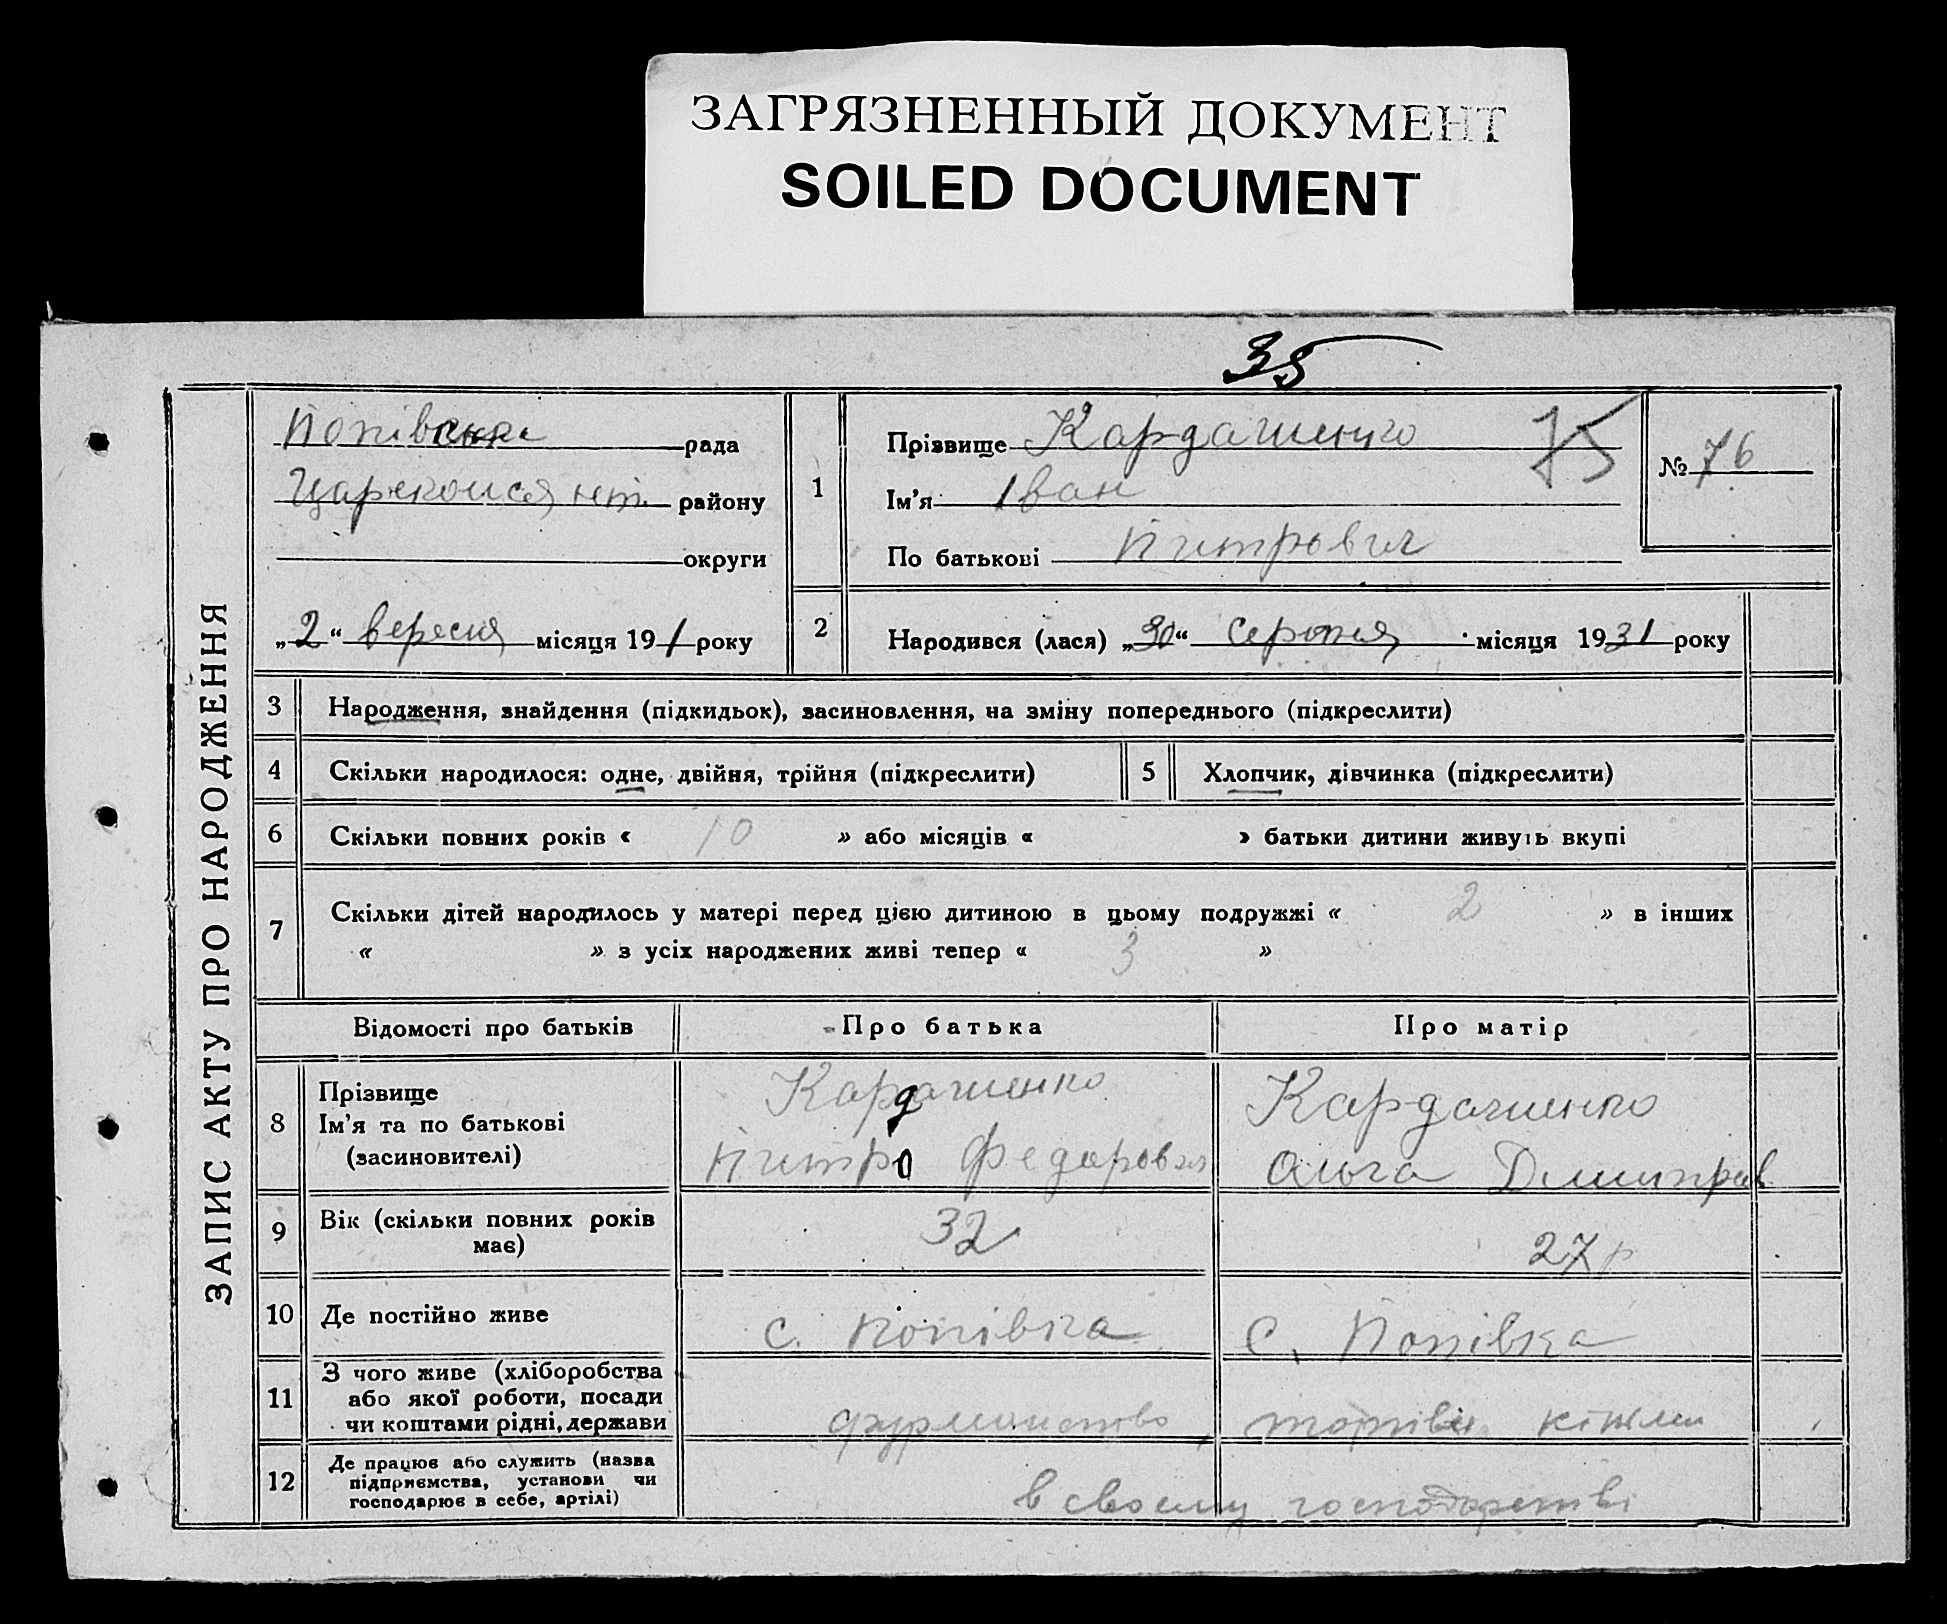 ЗАГРЯЗНЕННЫЙ ДОКУМЕНТ
SOILED DOCUMENT
35
ЗАПИС АКТУ ПРО НАРОДЖЕННЯ
Попівська рада
району
округи
„2“ вересня місяця 1931 року
1
Прізвище Кардашенко
75
Ім'я Іван
По батькові Питрович
№ 76
2
Народився (лася) „30“ серпня місяця 1931 року
3 Народження, знайдення (підкидьок), засиновлення, на зміну попереднього (підкреслити)
4 Скільки народилося: одне, двійня, трійня (підкреслити) 5 Хлопчик, дівчинка (підкреслити)
6 Скільки повних років « 10 » або місяців « » батьки дитини живуть вкупі
7 Скільки дітей народилось у матері перед цією дитиною в цьому подружжі « 2 » в інших
« » з усіх народжених живі тепер « 3 »
Відомості про батьків Про батька Про матір
8 Прізвище
Ім'я та по батькові
(засиновителі)
Кардашенко
Питро Федорович
Кардашенко
Ольга Дмитрів
9 Вік (скільки повних років
має)
32
27 р
10 Де постійно живе с. Попівка с. Попівка
11 З чого живе (хліборобства
або якої роботи, посади
чи коштами рідні, держави
12 Де працює або служить (назва
підприємства, установи чи
господарює в себе, артілі)
в своєму господарстві